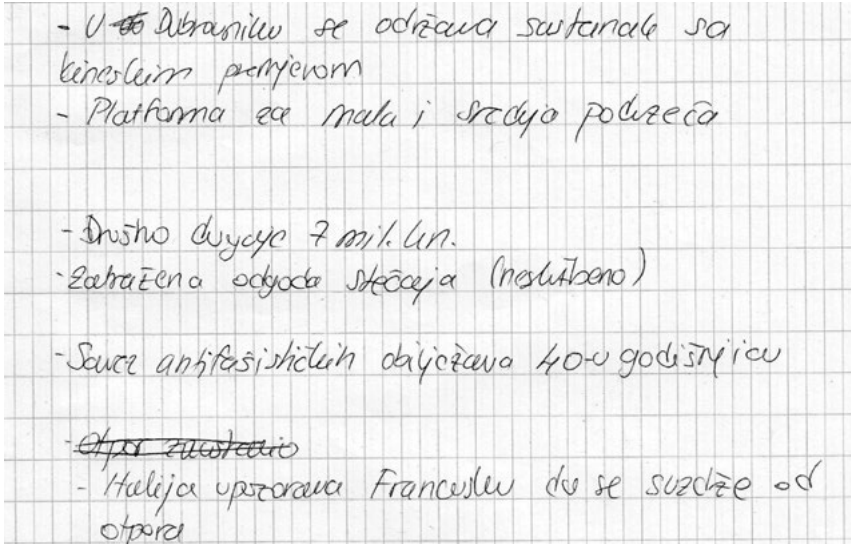 - U Dubrovniku se održava sastanak sa
kineskim premjerom
- Platforma za mala i srednja poduzeća
- Društvo duguje 7 mil. kn.
- Zatražena odgoda stečaja (neslužbeno)
- Savez antifašističkih obilježava 40-u godišnjicu
- Otpor
- Italija upozorava Francusku da se suzdrže od
otpora